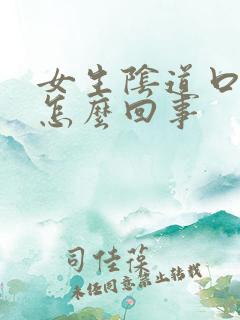 女生陰道口
怎麼回事
司佳葆
未经同意禁止转载